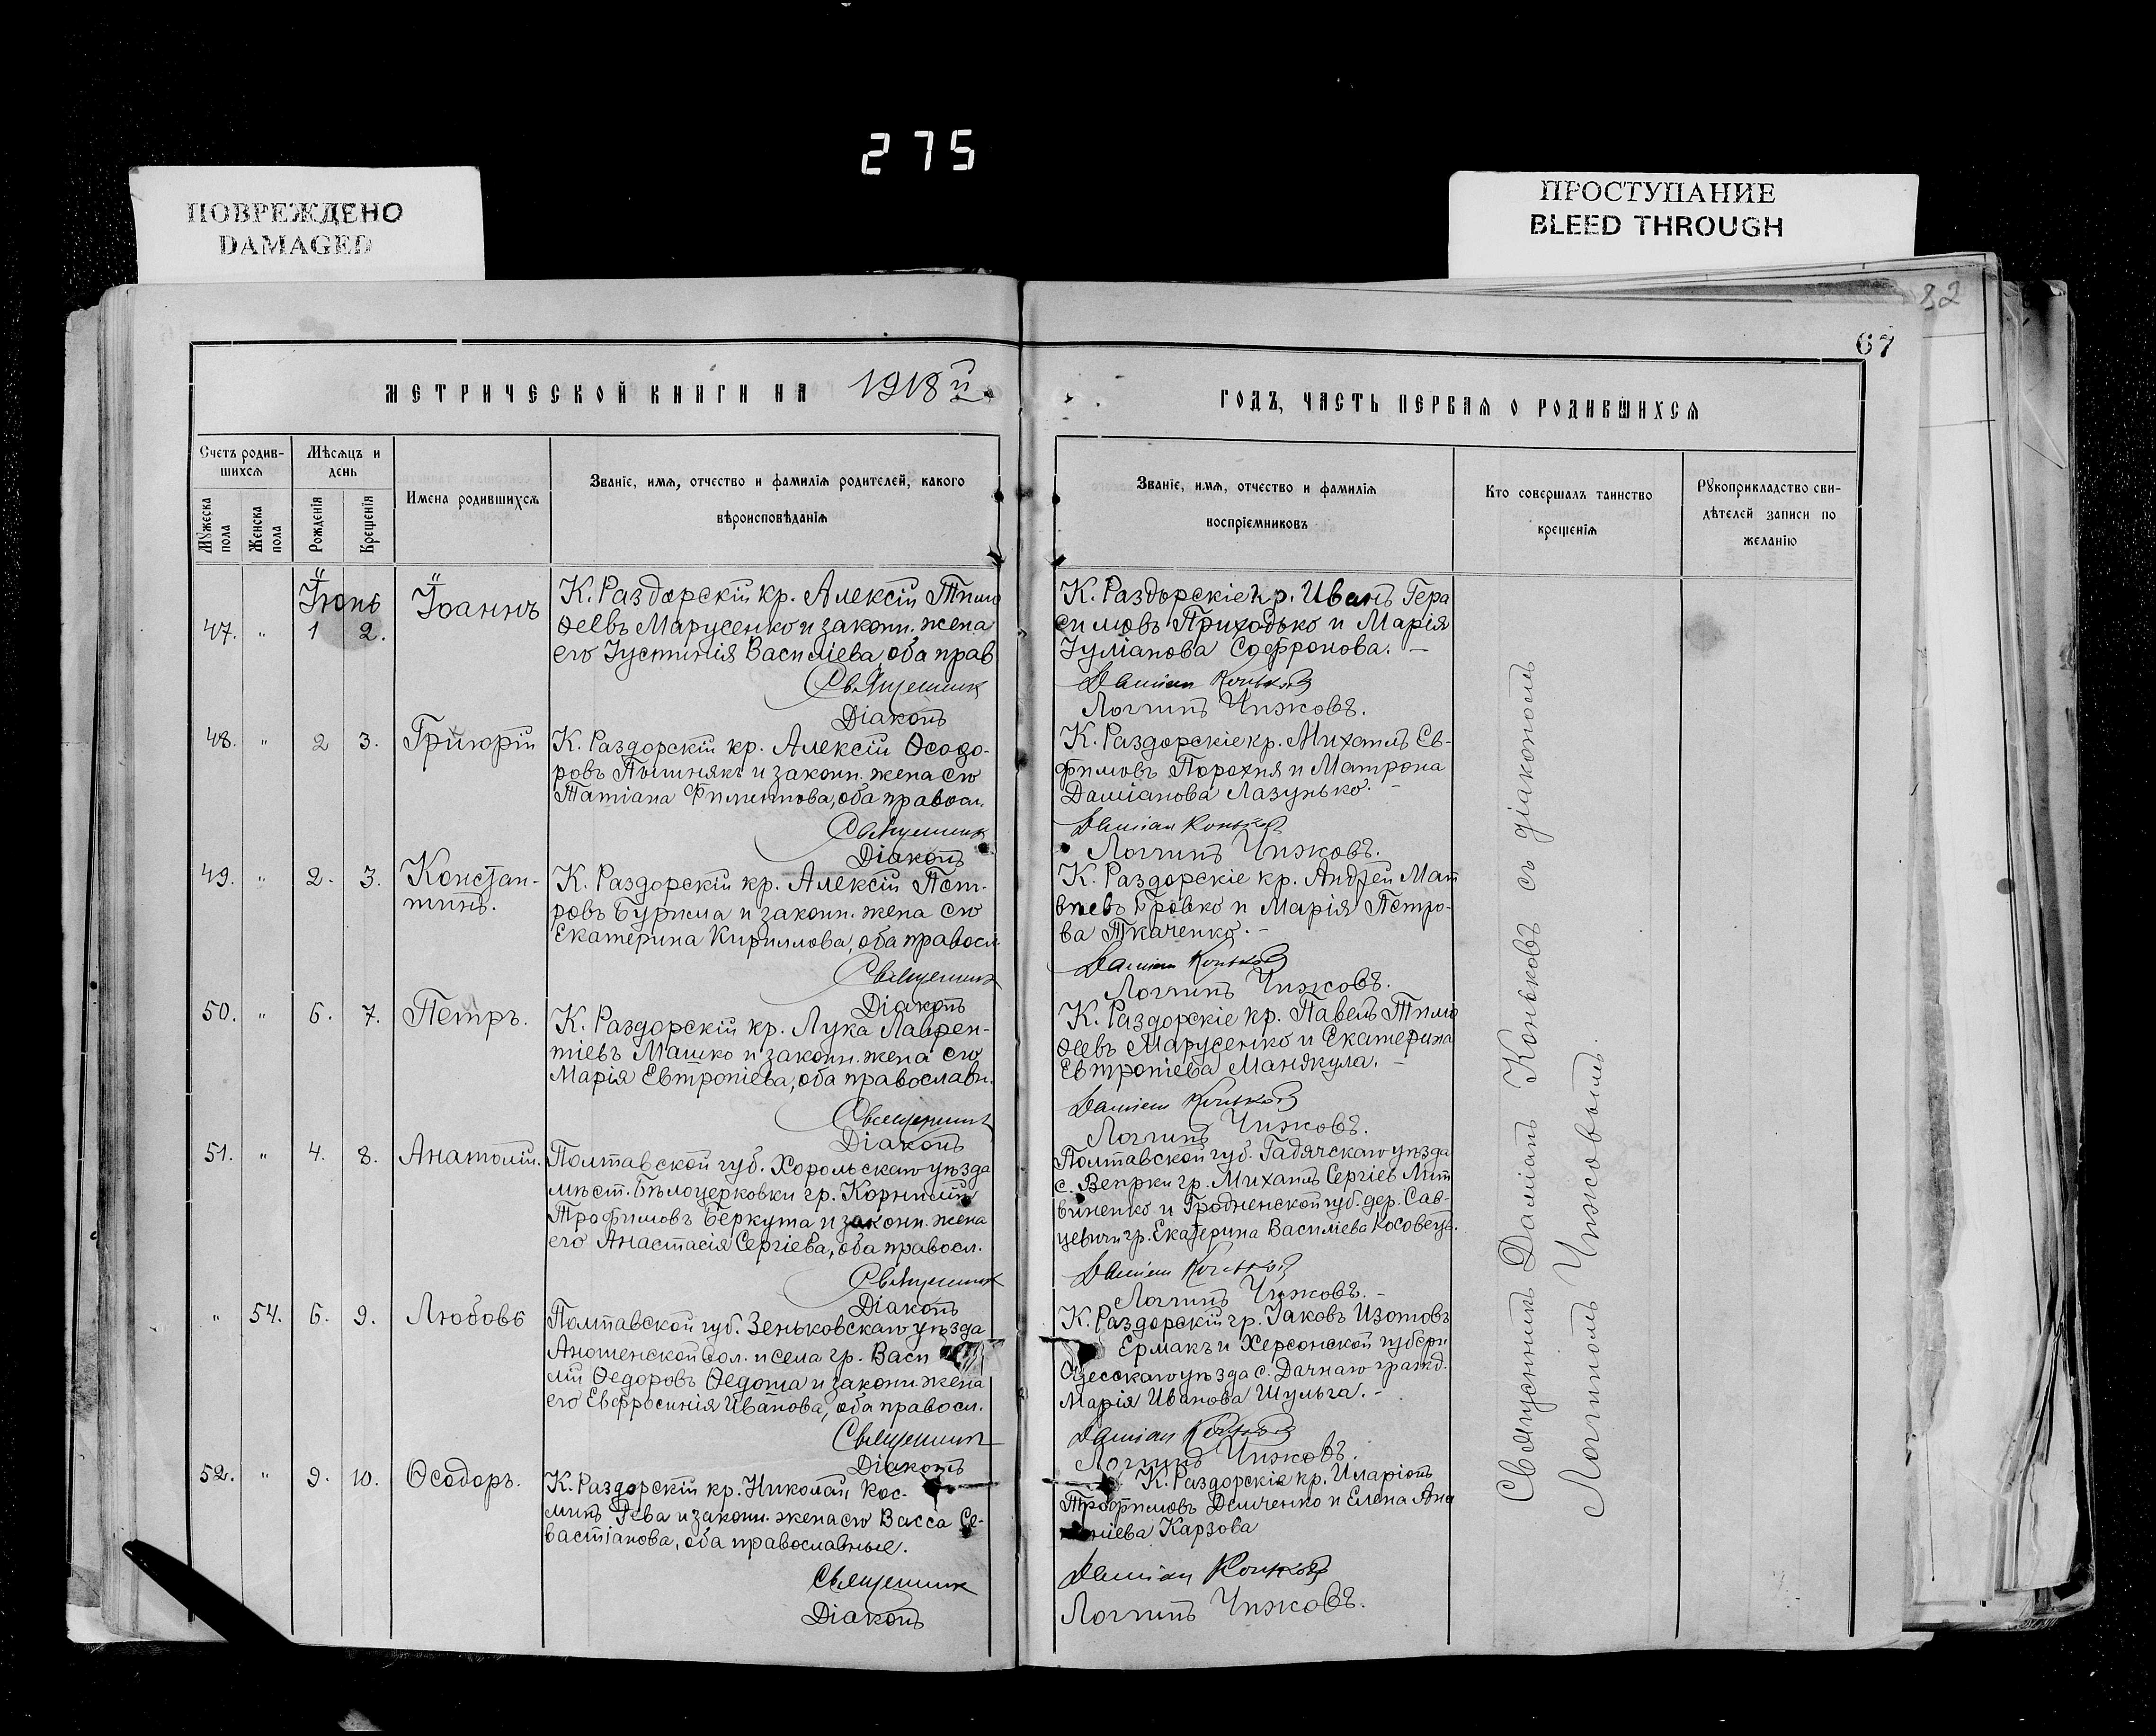 275
ПОВРЕЖДЕНО
DAMAGED
ПРОСТУПАНИЕ
BLEED THROUGH
82
67
МЕТРИЧЕСКОЙ КНИГИ НА 1918й
ГОДЪ, ЧАСТЬ ПЕРВАЯ О РОДИВШИХСЯ
Счетъ родив-
шихся
Мужеска пола
Женска пола
Мѣсяцъ и
день
Рожденія
Крещенія
Имена родившихся
Званіе, имя, отчество и фамилія родителей, какого
вѣроисповѣданія
Званіе, имя, отчество и фамилія
воспріемниковъ
Кто совершалъ таинство
крещенія
Рукоприкладство сви-
дѣтелей записи по
желанію
Іюнь
47. " 1 2. Іоаннъ
К. Раздорскій кр. Алексій Тимо
ѳеевъ Марусенко и законн. жена
его Іустинія Василіева, оба прав
Священник
Діаконъ
К. Раздорскіе кр. Иванъ Гера
симовъ Приходько и Марія
Іуліанова Софронова. —
Даміан Коньковъ
Логгинъ Чижовъ.
48. " 2 3. Григорій
К. Раздорскій кр. Алексій Ѳеодо-
ровъ Пышнякъ и законн. жена его
Татіана Филиппова, оба правосл.
Священник
Діаконъ
К. Раздорскіе кр. Михаилъ Ев-
фимовъ Порохня и Матрона
Даміанова Лазунько. —
Даміан Коньковъ
Логгинъ Чижовъ.
49. " 2. 3. Констан-
тинъ.
К. Раздорскій кр. Алексій Пет-
ровъ Бурима и законн. жена его
Екатерина Кириллова, оба правосл.
Священник
Діаконъ
К. Раздорскіе кр. Андрей Мат
вѣевъ Бровко и Марія Петро-
ва Ткаченко. —
Даміан Коньковъ
Логгинъ Чижовъ.
50. " 6. 7. Петръ.
К. Раздорскій кр. Лука Лаврен-
тіевъ Машко и законн. жена его
Марія Евтропіева, оба православн.
Священник
Діаконъ
К. Раздорскіе кр. Павелъ Тимо
ѳеевъ Марусенко и Екатерина
Евтропіева Манякула. —
Даміан Коньковъ
Логгинъ Чижовъ.
51. " 4. 8. Анатолій.
Полтавской губ. Хорольскаго уѣзда
мѣст. Бѣлоцерковки гр. Корнилій
Трофимовъ Беркута и законн. жена
его Анастасія Сергіева, оба правосл.
Священник
Діаконъ
Полтавской губ. Гадячскаго уѣзда
с. Веприки гр. Михаилъ Сергіев Лит
виненко и Гродненской губ. дер. Сав-
цевичи гр. Екатерина Василіева Косовецъ.
Даміан Коньковъ
Логгинъ Чижовъ. —
" 54. 6. 9. Любовь
Полтавской губ. Зеньковскаго уѣзда
вол. и села гр. Васи
лій Ѳедоровъ Ѳедота и законн. жена
его Евфросинія Иванова, оба правосл.
Священник
Діаконъ
К. Раздорскій гр. Іаковъ Изотовъ
Ермакъ и Херсонской губерн
Одесскаго уѣзда с. Дачнаго гражд.
Марія Иванова Шульга. —
Даміан Коньковъ
Логгинъ Чижовъ.
52. " 9. 10. Ѳеодоръ.
К. Раздорскій кр. Николай Кос-
минъ Рева и законн. жена его Васса Се-
вастіанова, оба православные.
Священник
Діаконъ
К. Раздорскіе кр. Иларіонъ
Трофимовъ Демченко и Елена
Карзова
Даміан Коньковъ
Логгинъ Чижовъ.
Священникъ Даміанъ Коньковъ съ діакономъ
Логгиномъ Чижовымъ.